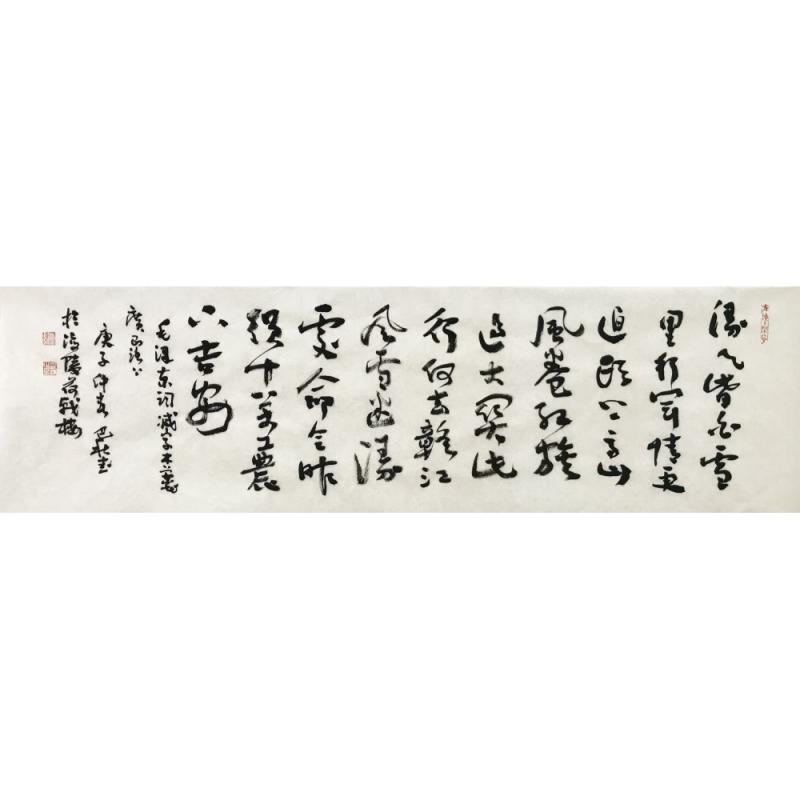 漫天皆白雪
里行军情更
迫頭上高山
風卷红旗
过大関此
行何去赣江
风雪迷漫
處命令昨
頒十万工農
下吉安
毛泽东词减字木兰花
廣昌路上
庚子仲春
於涪陵荷戟楼